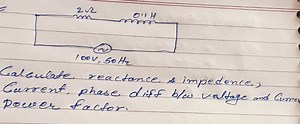 2Ω 0.1H
100V, 50Hz
Calculate reactance & impedence,
Current, phase diff b/w voltage and Current
Power factor.